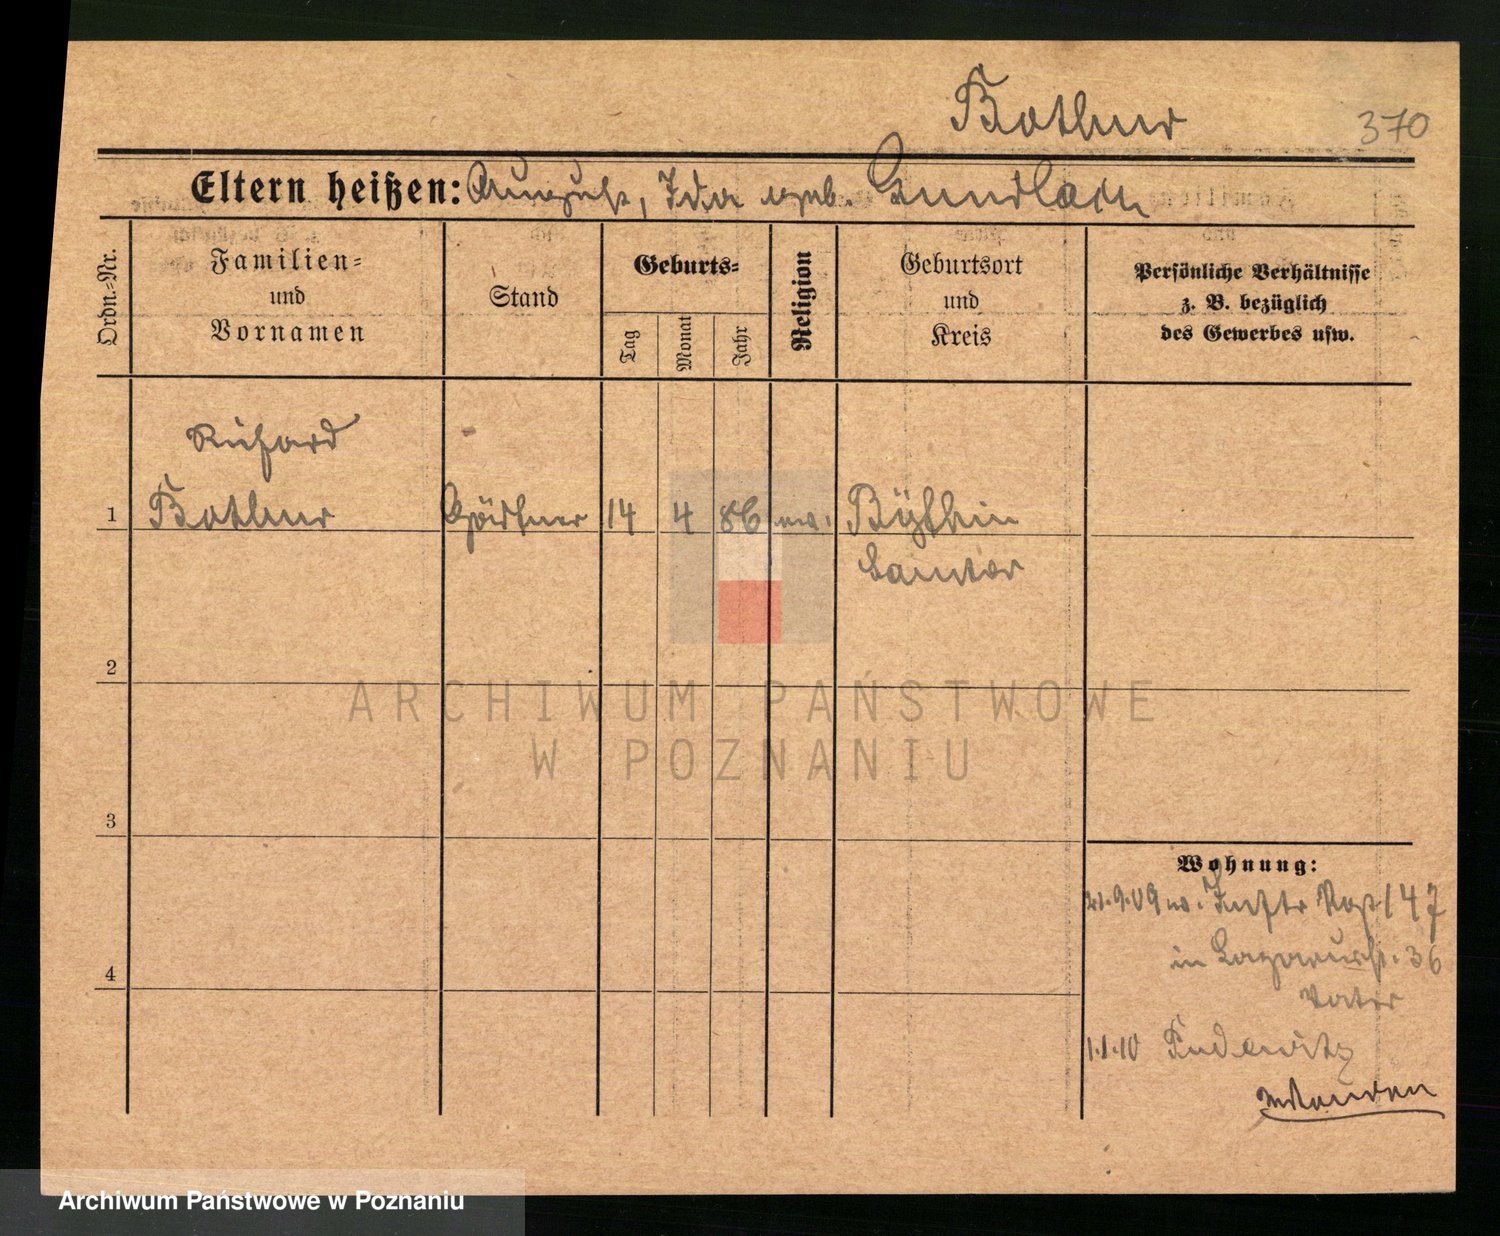 Bothur
370
Eltern heißen: August, Ida geb. Gundlach
Ordn.-Nr.
Familien-
und
Vornamen
Stand
Geburts-
Tag
Monat
Jahr
Religion
Geburtsort
und
Kreis
Persönliche Verhältnisse
z. B. bezüglich
des Gewerbes usw.
Richard
1 Bothur Gärtner 14 4 86 Bythin
Samter
2
3
4
Wohnung:
21.9.09 v. Inftr Rgt 147
in Lazarusstr. 36
Vater
1.1.10 Pudewitz
ARCHIWUM PAŃSTWOWE
W POZNANIU
Archiwum Państwowe w Poznaniu